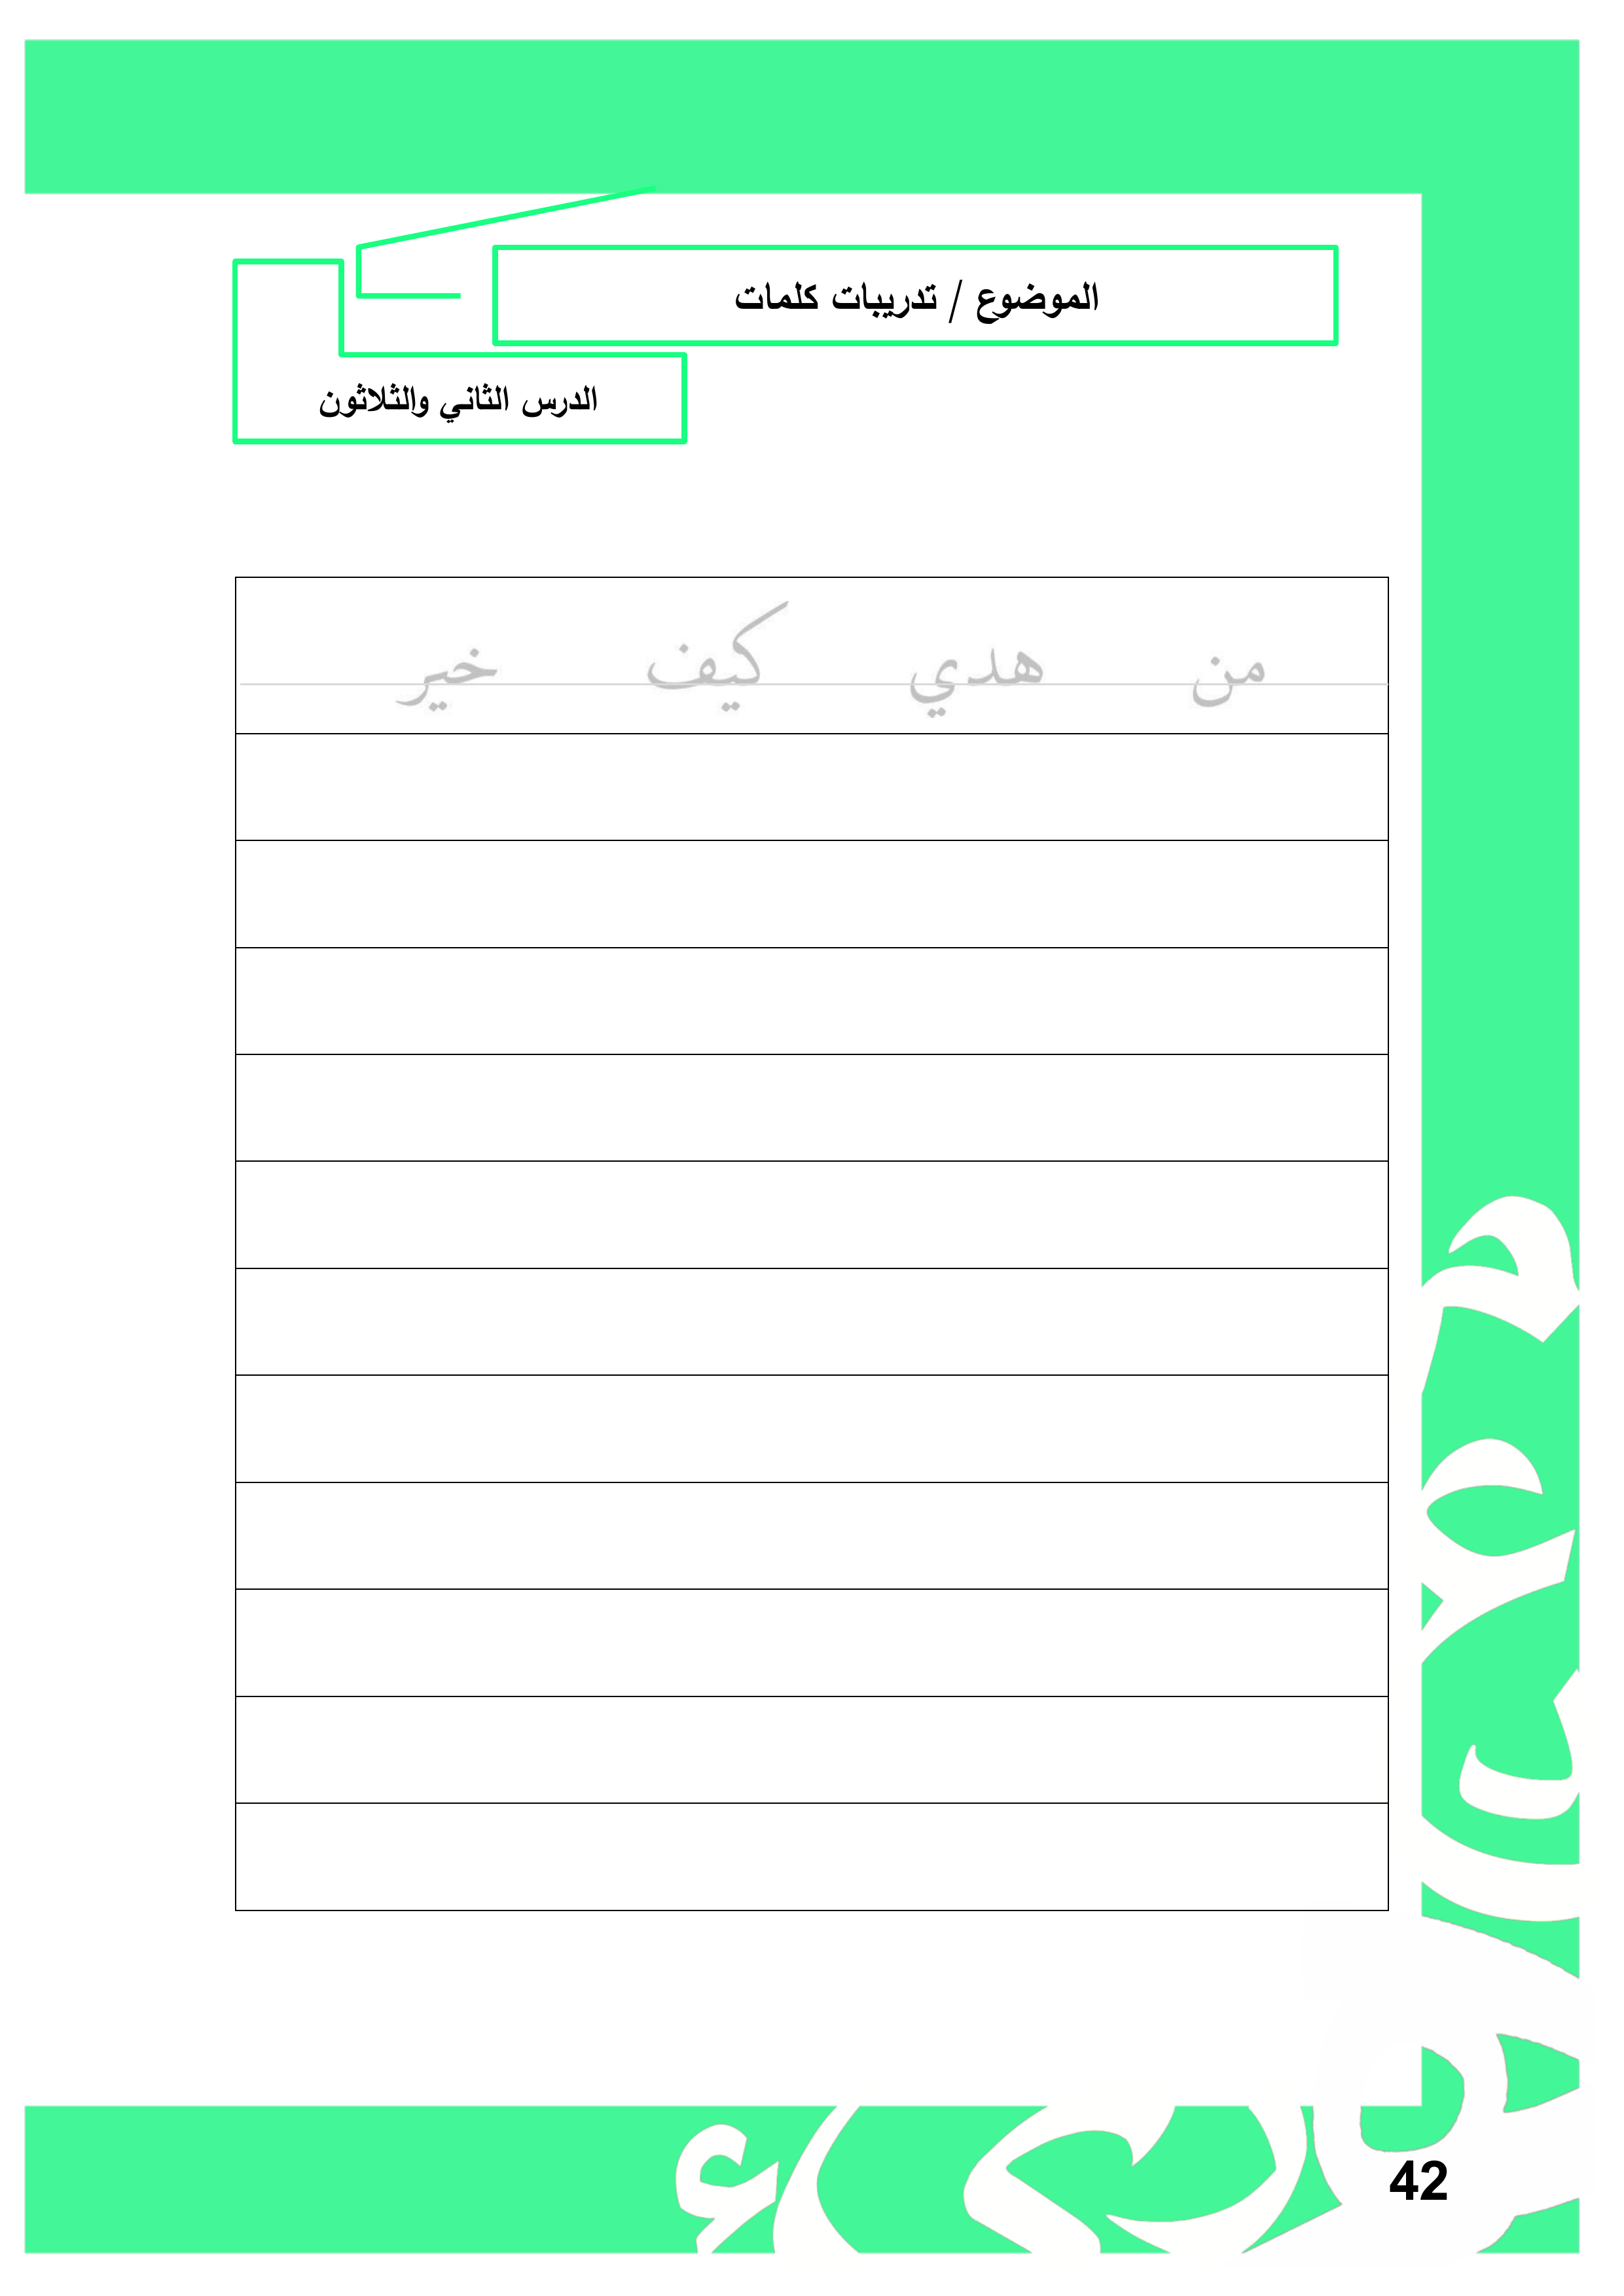 الموضوع / تدريبات كلمات
الدرس الثاني والثلاثون
من هدي كيف خير
42